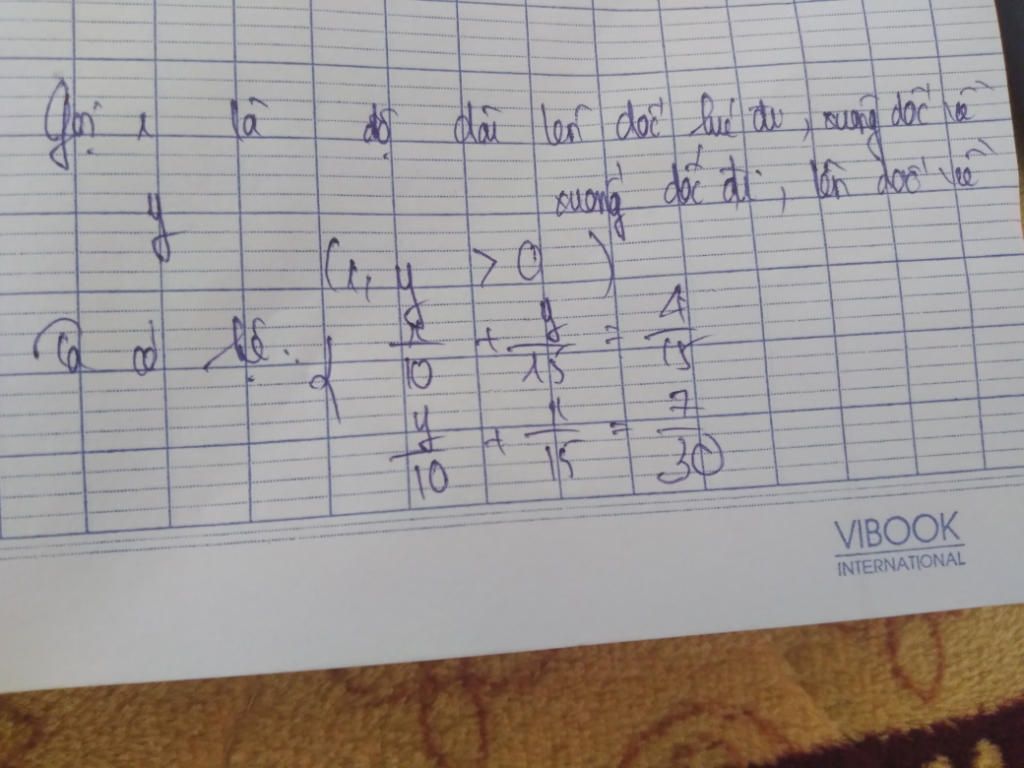 Gọi x là độ dài lên dốc lúc đi, xuống dốc về
y xuống dốc đi, lên dốc về
(x, y > 0)
Ta có hệ: { x/10 + y/15 = 4/15
y/10 + x/15 = 7/30
VIBOOK
INTERNATIONAL